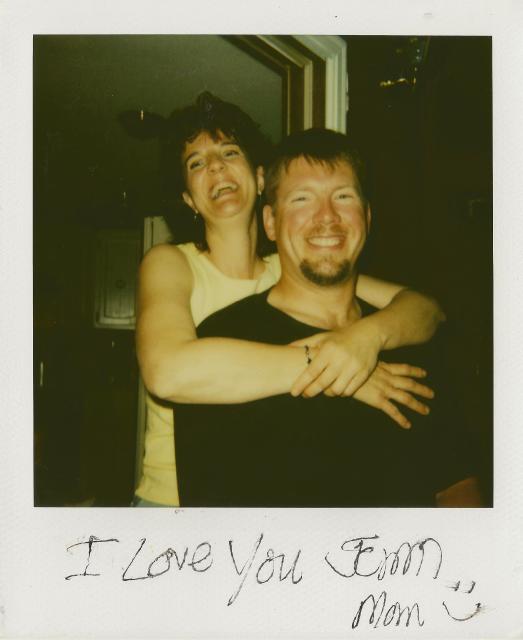 I Love You Jenn
Mom